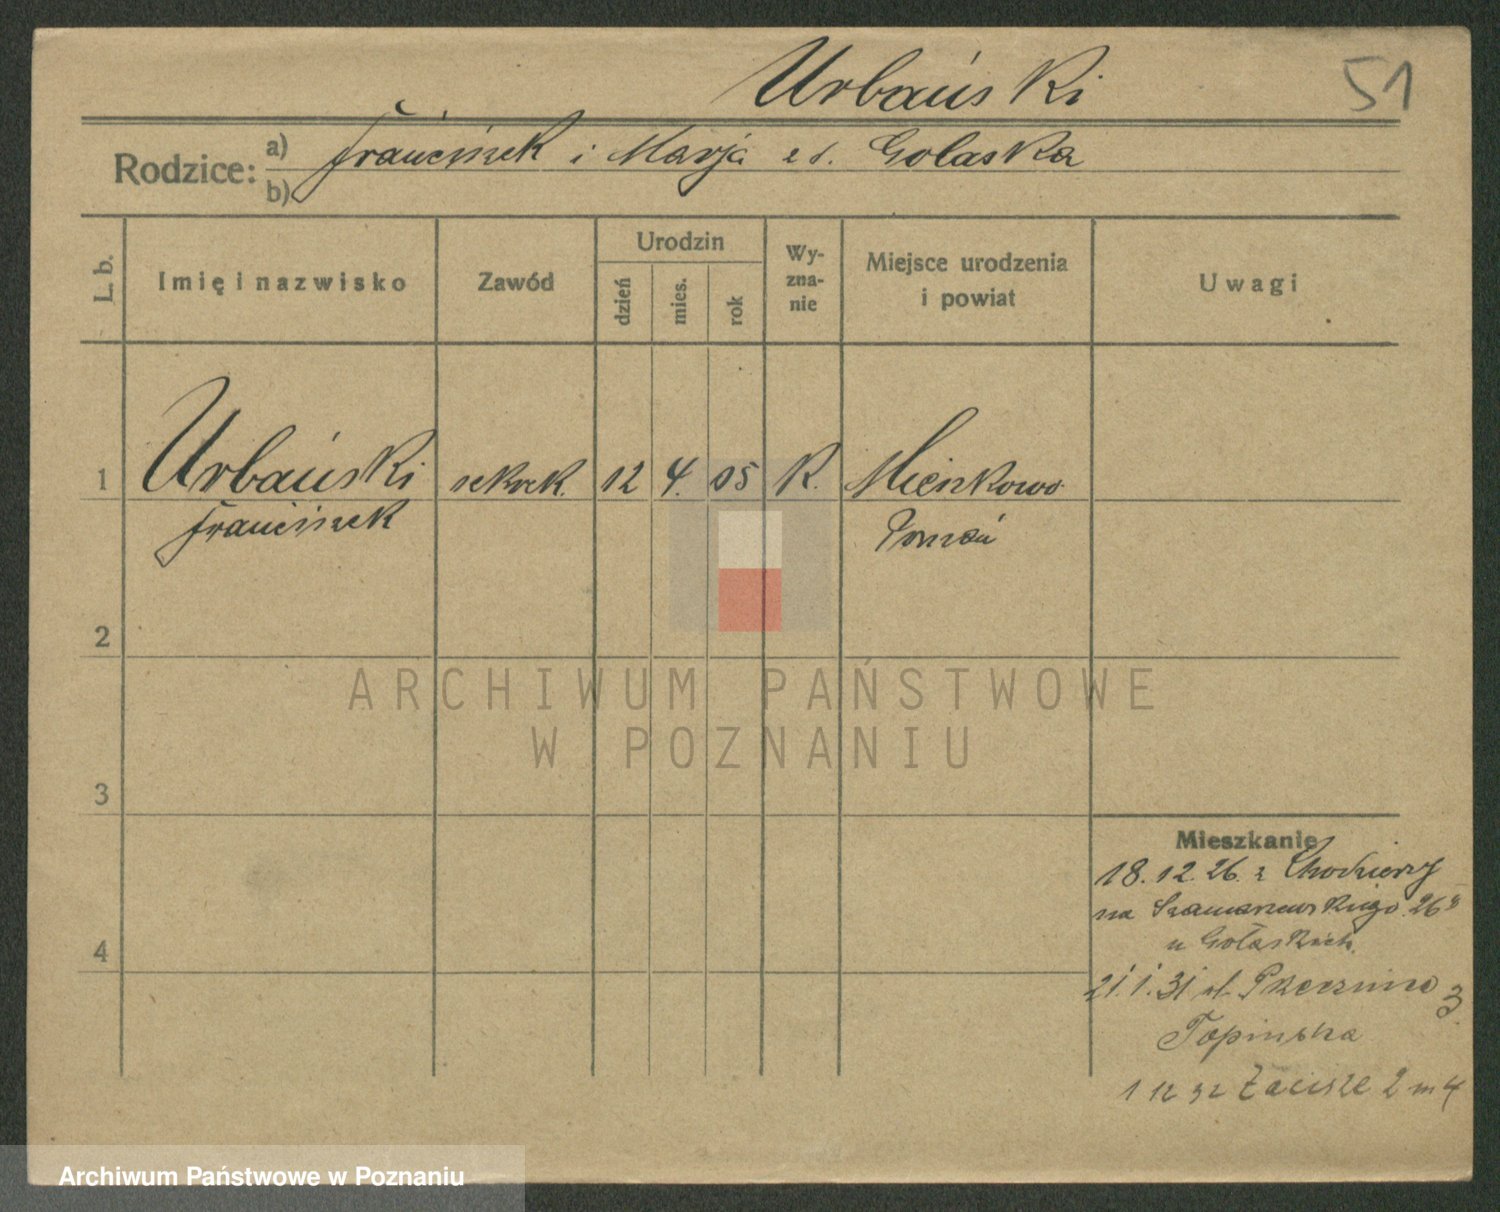 Urbański
51
Rodzice: a) Franciszek i Marja z d. Golaska
b)
L. b.
Imię i nazwisko
Zawód
Urodzin
dzień
mies.
rok
Wy-
zna-
nie
Miejsce urodzenia
i powiat
Uwagi
1 Urbański sekret. 12 4. 05 R. Mieczkowo
Franciszek Poznań
2
3
4
Mieszkanie
18.12.26. z Chodzieży
na Szamarzewskiego 26
u Gołaskich.
21.1.31 ul. 3
1 12 32 Zacisze 2 m 4
ARCHIWUM PAŃSTWOWE
W POZNANIU
Archiwum Państwowe w Poznaniu